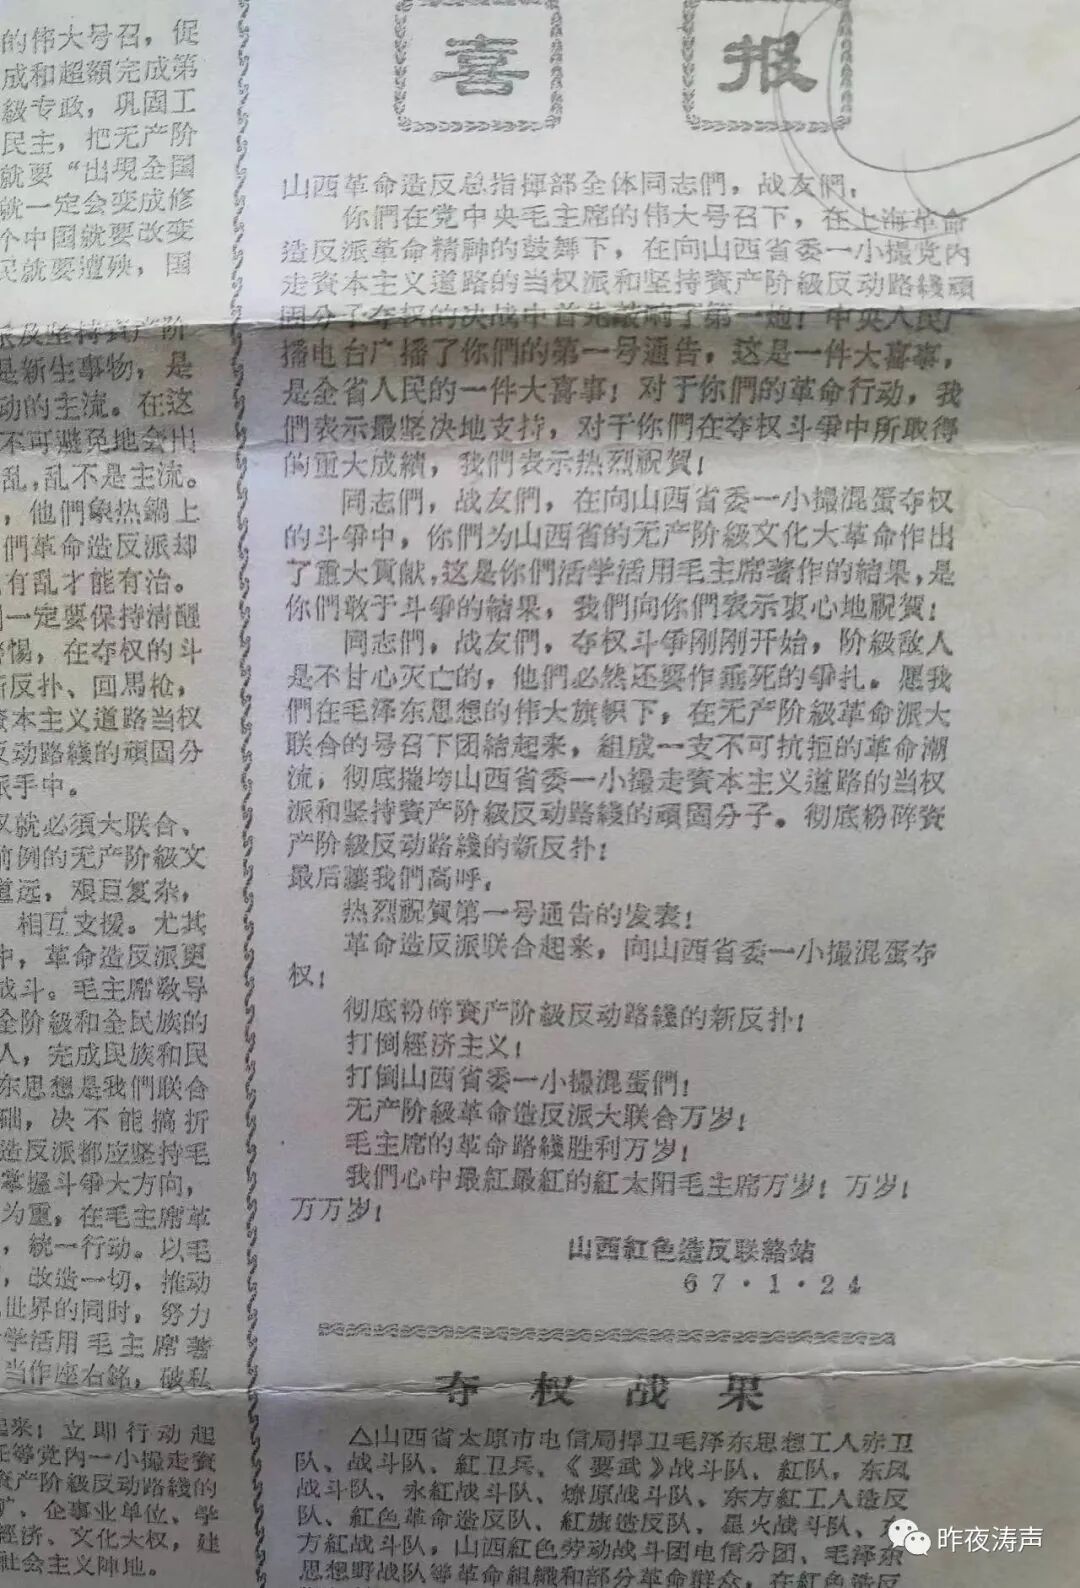 的伟大号召，促
成和超額完成第
級专政，巩固工
民主，把无产阶
就要“出現全国
就一定会变成修
个中国就要改变
民就要遭殃，国
及坚持資产阶
是新生事物，是
动的主流。在这
不可避免地会出
乱，乱不是主流。
，他們象热鍋上
們革命造反派却
有乱才能有治。
一定要保持清醒
惕，在夺权的斗
反扑、回馬枪，
資本主义道路当权
反动路綫的頑固分
派手中。
权就必須大联合、
前例的无产阶級文
道远，艰巨复杂，
相互支援。尤其
中，革命造反派更
战斗。毛主席敎导
全阶級和全民族的
人，完成民族和民
东思想是我們联合
础，决不能搞折
造反派都应坚持毛
掌握斗爭大方向，
为重，在毛主席革
，統一行动。以毛
，改造一切，推动
世界的同时，努力
学活用毛主席著
当作座右銘，破私
起来！立即行动起
等党内一小撮走資
資产阶級反动路綫的
矿、企事业单位、学
經济、文化大权，建
社会主义陣地。
喜报
山西革命造反总指揮部全体同志們，战友們，
你們在党中央毛主席的伟大号召下，在上海革命
造反派革命精神的鼓舞下，在向山西省委一小撮党內
走資本主义道路的当权派和坚持資产阶級反动路綫頑
固分子夺权的决战中首先敲响了第一炮！中央人民广
播电台广播了你們的第一号通告，这是一件大喜事，
是全省人民的一件大喜事！对于你們的革命行动，我
們表示最坚决地支持，对于你們在夺权斗爭中所取得
的重大成績，我們表示热烈祝賀！
同志們，战友們，在向山西省委一小撮混蛋夺权
的斗爭中，你們为山西省的无产阶級文化大革命作出
了重大貢献，这是你們活学活用毛主席著作的結果，是
你們敢于斗爭的結果，我們向你們表示衷心地祝賀！
同志們，战友們，夺权斗爭刚刚开始，阶級敌人
是不甘心灭亡的，他們必然还要作垂死的爭扎。愿我
們在毛泽东思想的伟大旗帜下，在无产阶級革命派大
联合的号召下团結起来，組成一支不可抗拒的革命潮
流，彻底摧垮山西省委一小撮走資本主义道路的当权
派和坚持資产阶級反动路綫的頑固分子。彻底粉碎資
产阶級反动路綫的新反扑！
最后讓我們高呼，
热烈祝賀第一号通告的发表！
革命造反派联合起来，向山西省委一小撮混蛋夺
权！
彻底粉碎資产阶級反动路綫的新反扑！
打倒經济主义！
打倒山西省委一小撮混蛋們！
无产阶級革命造反派大联合万岁！
毛主席的革命路綫胜利万岁！
我們心中最紅最紅的紅太阳毛主席万岁！万岁！
万万岁！
山西紅色造反联絡站
67·1·24
夺权战果
△山西省太原市电信局捍卫毛泽东思想工人赤卫
队、战斗队、紅卫兵、《要武》战斗队、紅队，东风
战斗队、永紅战斗队、燎原战斗队、东方紅工人造反
队、紅色革命造反队、紅旗造反队、星火战斗队、东
方紅战斗队，山西紅色劳动战斗团电信分团、毛泽东
思想野战队等革命組織和部分革命群众，在紅色造反
昨夜涛声